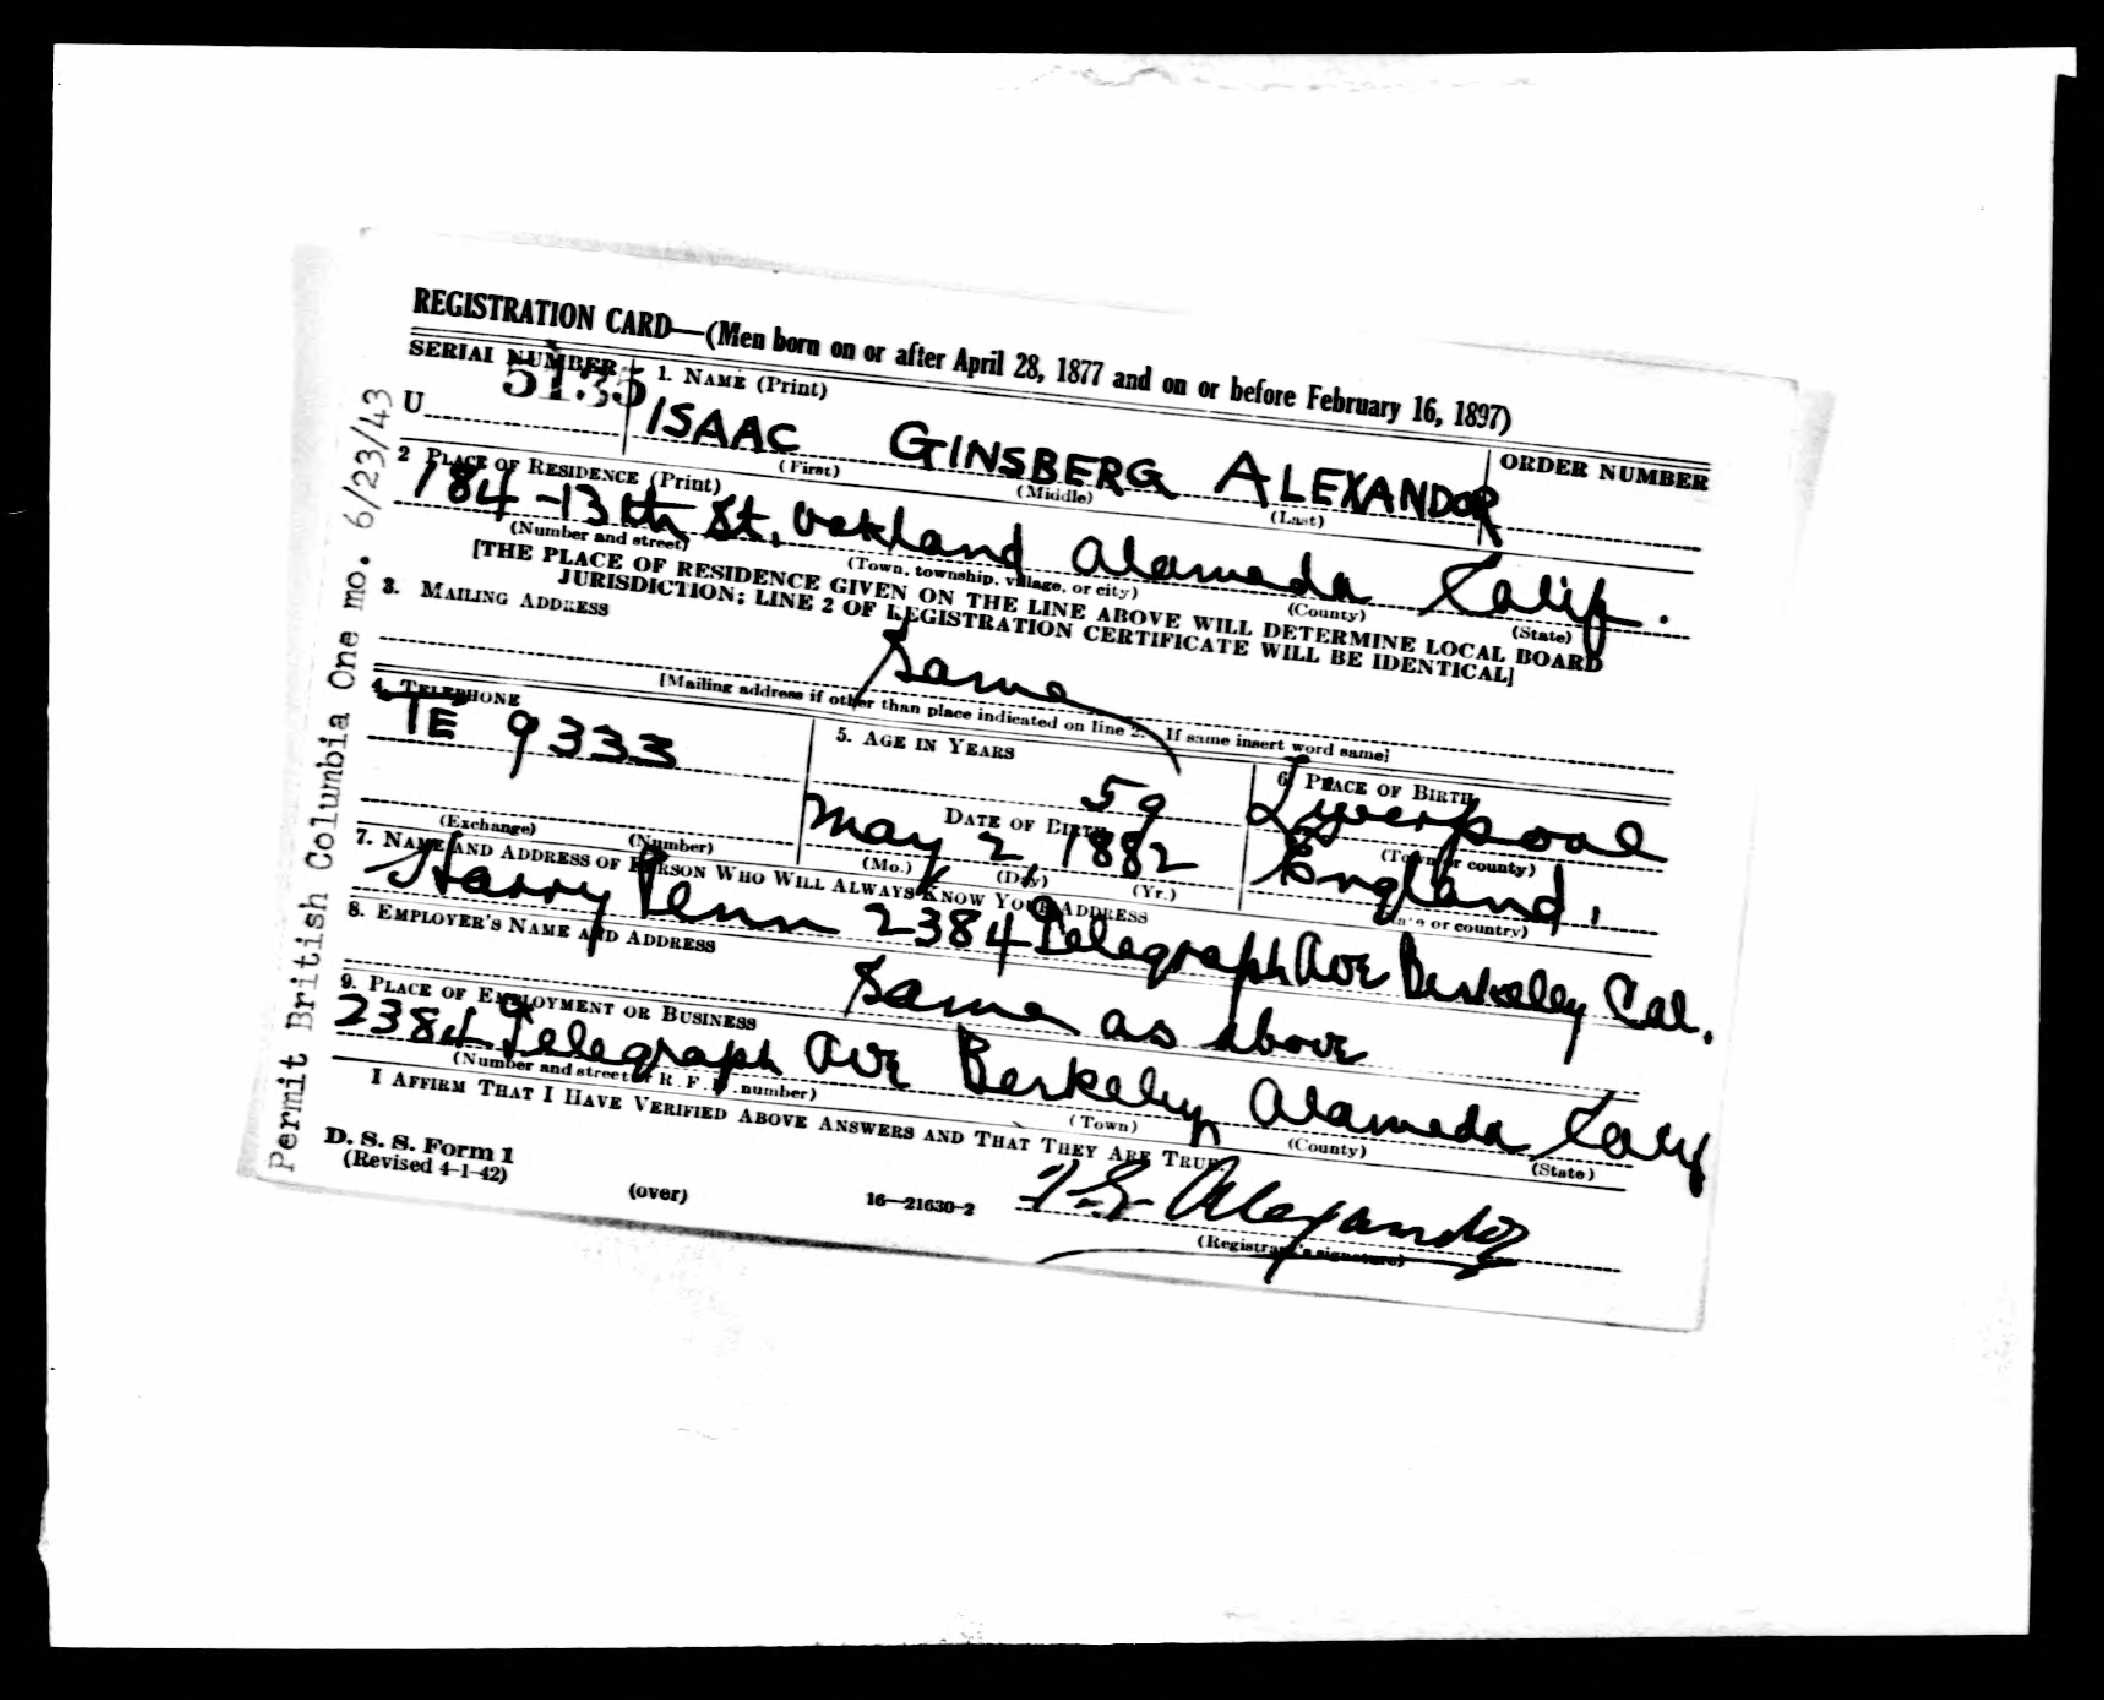 REGISTRATION CARD—(Men born on or after April 28, 1877 and on or before February 16, 1897)
SERIAL NUMBER
1. NAME (Print)
ORDER NUMBER
U 5135
ISAAC GINSBERG ALEXANDOR
(First) (Middle) (Last)
2 PLACE OF RESIDENCE (Print)
184-13th St. Oakland Alameda Calif.
(Number and street) (Town, township, village, or city) (County) (State)
[THE PLACE OF RESIDENCE GIVEN ON THE LINE ABOVE WILL DETERMINE LOCAL BOARD
JURISDICTION; LINE 2 OF REGISTRATION CERTIFICATE WILL BE IDENTICAL]
3. MAILING ADDRESS
Same
[Mailing address if other than place indicated on line 2. If same insert word same]
4. TELEPHONE
TE 9333
(Exchange) (Number)
5. AGE IN YEARS
59
DATE OF BIRTH
May 2, 1882
(Mo.) (Day) (Yr.)
6. PLACE OF BIRTH
Liverpool
(Town or county)
England.
(State or country)
7. NAME AND ADDRESS OF PERSON WHO WILL ALWAYS KNOW YOUR ADDRESS
Harry Penn 2384 Telegraph Ave Berkeley Cal.
8. EMPLOYER'S NAME AND ADDRESS
Same as above
9. PLACE OF EMPLOYMENT OR BUSINESS
2384 Telegraph Ave Berkeley Alameda Calif
(Number and street or R. F. D. number) (Town) (County) (State)
I AFFIRM THAT I HAVE VERIFIED ABOVE ANSWERS AND THAT THEY ARE TRUE.
D. S. S. Form 1
(Revised 4-1-42)
(over)
16—21630-2
I G Alexandor
(Registrant's signature)
Permit British Columbia One mo. 6/23/43